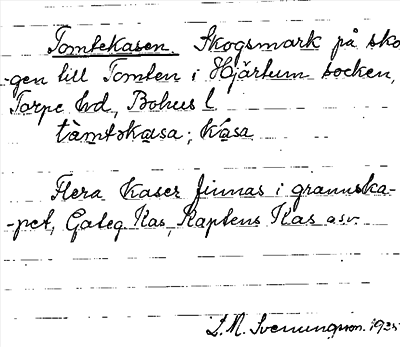 Tomtekasen. Skogsmark på sko-
gen till Tomten i Hjärtum socken,
Torpe hd, Bohus l.
tàmtəkasa; kasa
Flera Kaser finnas i grannska-
-pet, Gateq Kas, Kaptens Kas asv.
S. A. Svenungson. 1935